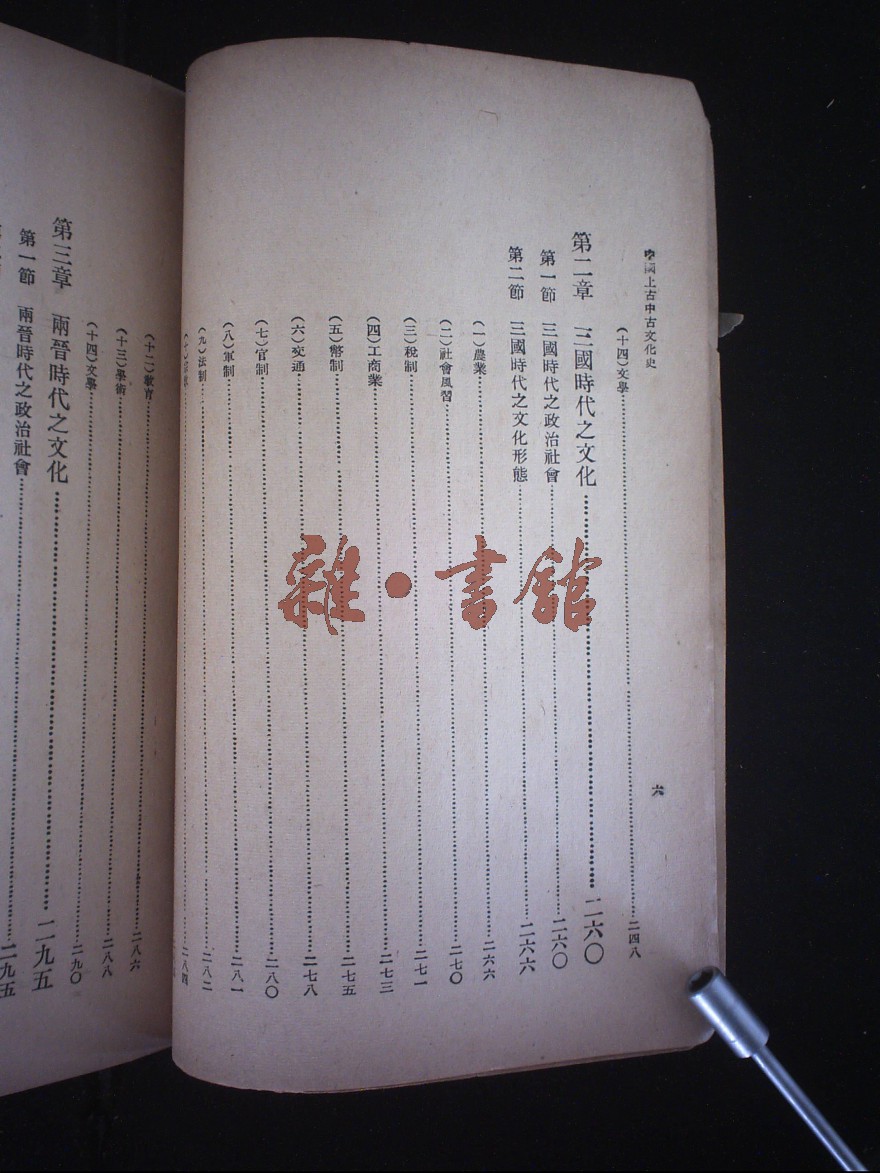 中國上古中古文化史
六
（十四）文學 二四八
第二章 三國時代之文化 二六〇
第一節 三國時代之政治社會 二六〇
第二節 三國時代之文化形態 二六六
（一）農業 二六六
（二）社會風習 二七〇
（三）稅制 二七一
（四）工商業 二七三
（五）幣制 二七五
（六）交通 二七八
（七）官制 二八〇
（八）軍制 二八一
（九）法制 二八二
二八四
（十二）教育 二八六
（十三）學術 二八八
（十四）文學 二九〇
第三章 兩晉時代之文化 二九五
第一節 兩晉時代之政治社會 二九五
雜·書館